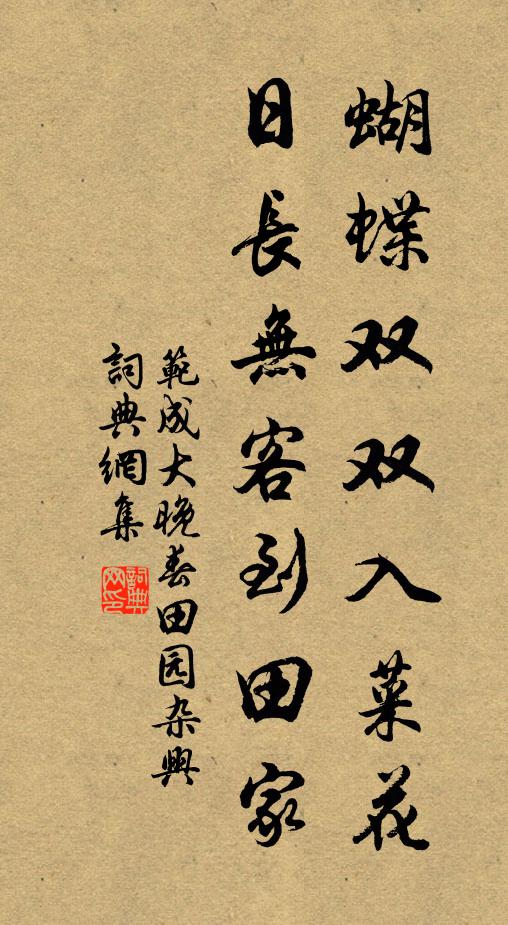 蝴蝶双双入菜花
日長無客到田家
範成大晚春田园杂興
詞典網集
詞典网印